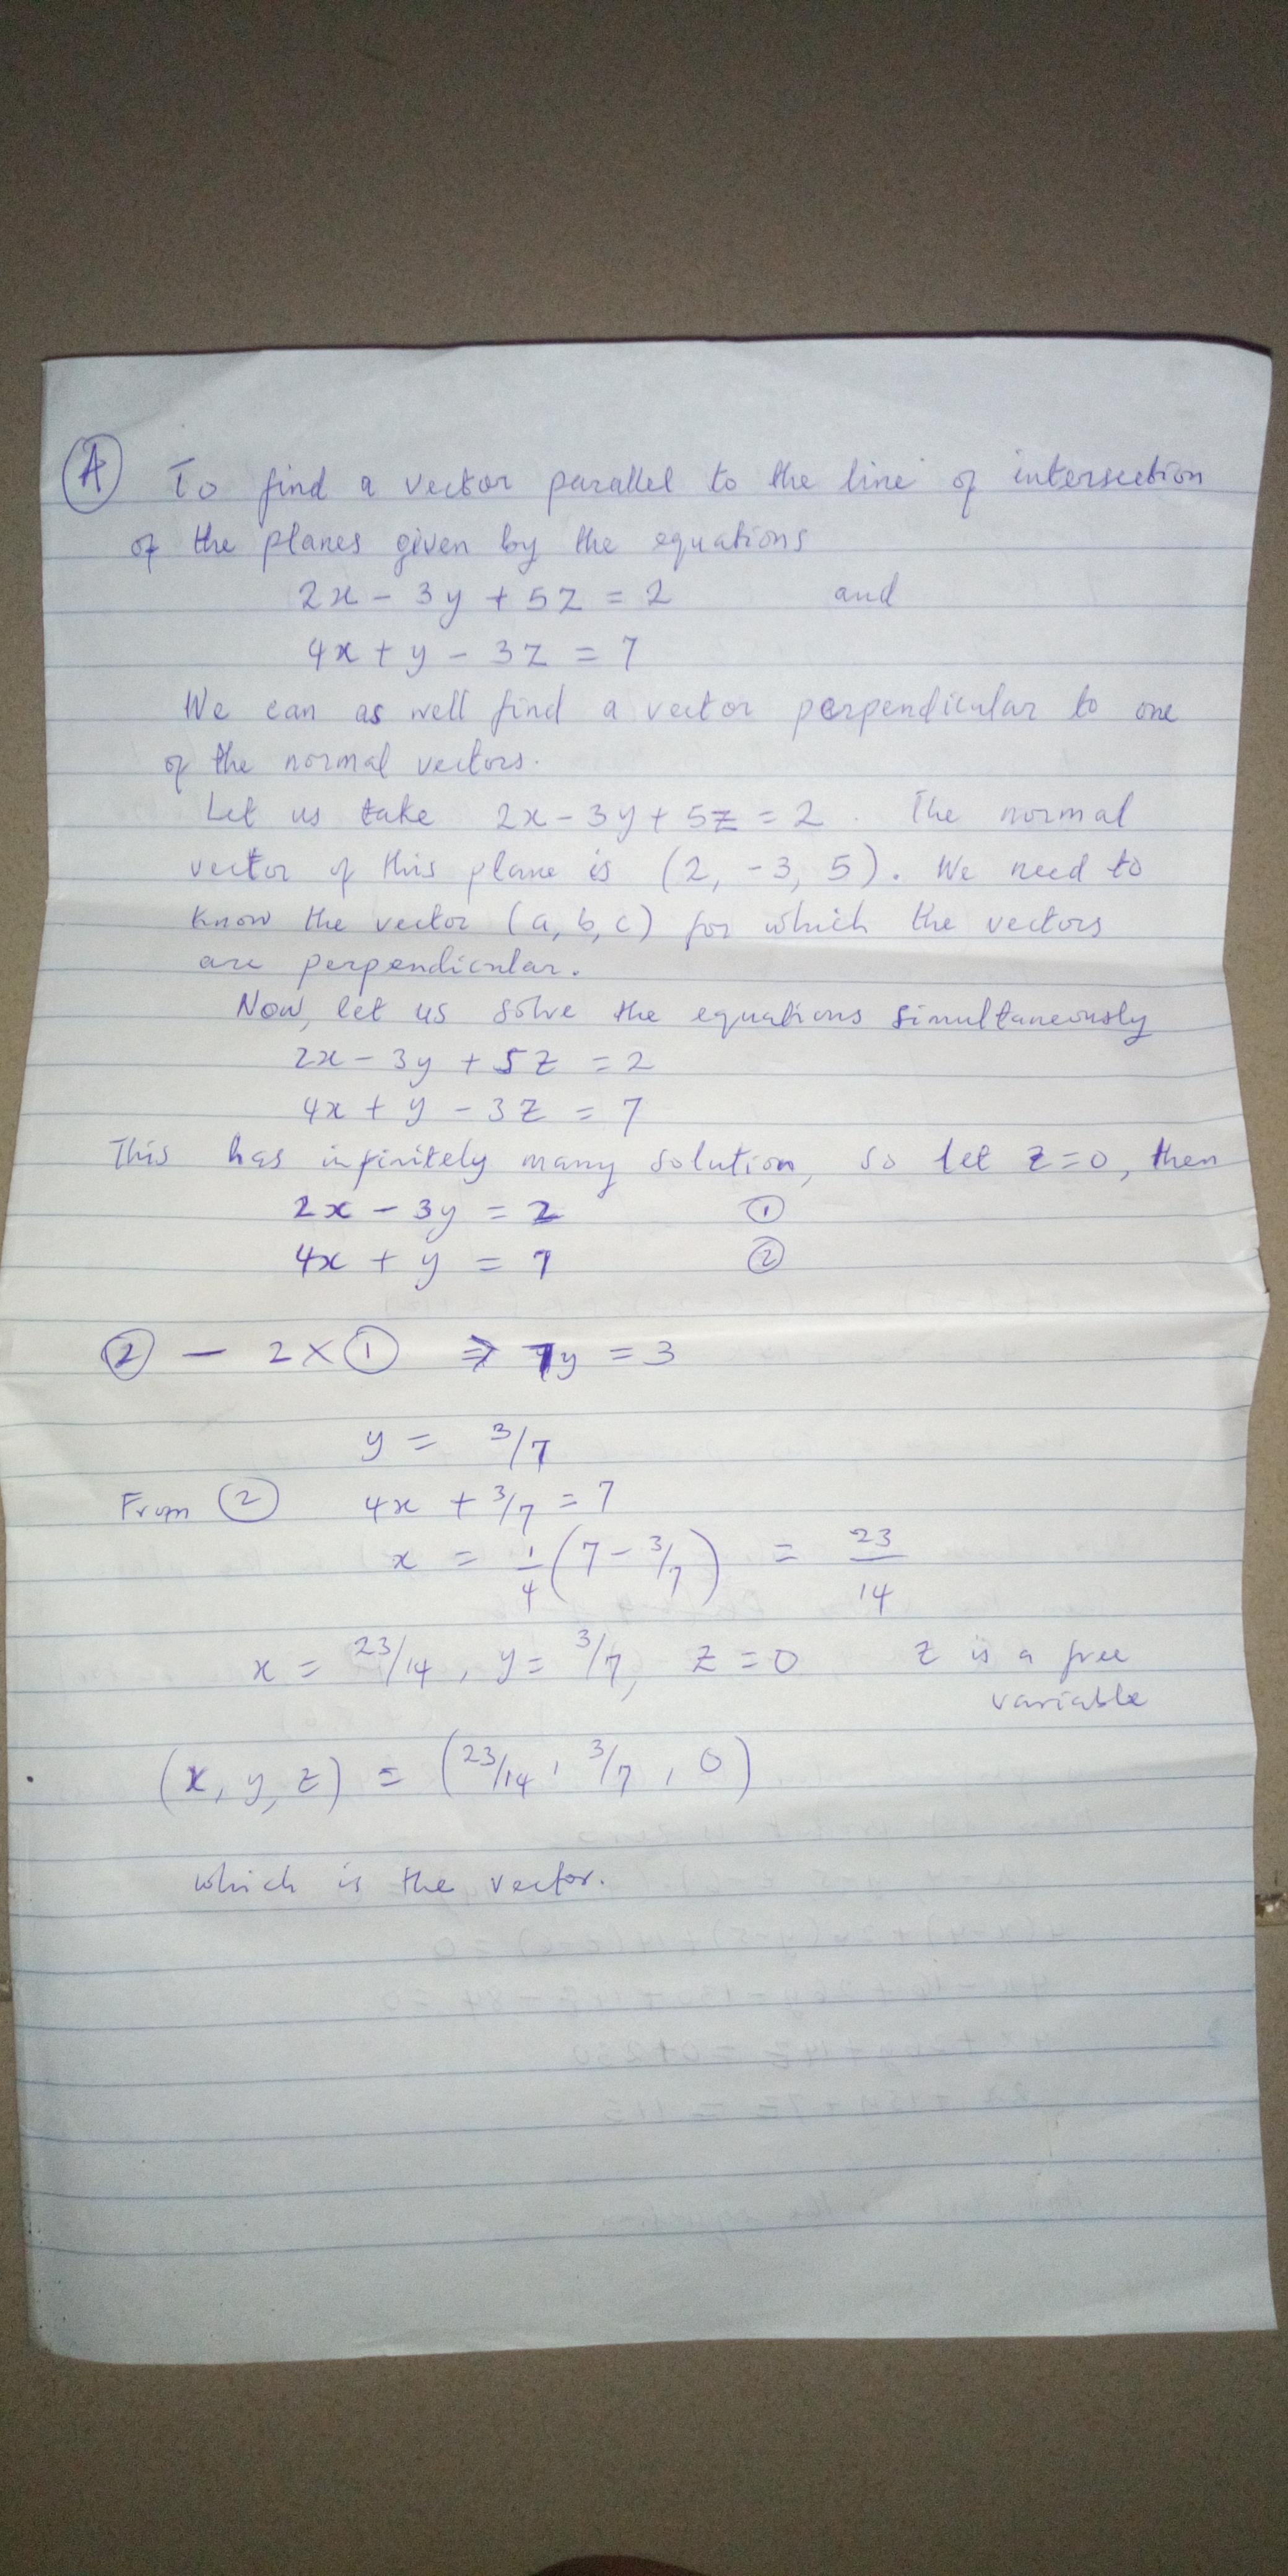 (A) To find a vector parallel to the line of intersection
of the planes given by the equations
2x - 3y + 5z = 2 and
4x + y - 3z = 7
We can as well find a vector perpendicular to one
of the normal vectors.
Let us take 2x - 3y + 5z = 2. The normal
vector of this plane is (2, -3, 5). We need to
know the vector (a, b, c) for which the vectors
are perpendicular.
Now, let us solve the equations simultaneously
2x - 3y + 5z = 2
4x + y - 3z = 7
This has infinitely many solution, so let z=0, then
2x - 3y = 2 ①
4x + y = 7 ②
② - 2 × ① ⇒ 7y = 3
y = 3/7
From ② 4x + 3/7 = 7
x = 1/4 (7 - 3/7) = 23/14
x = 23/14, y = 3/7, z = 0 z is a free
variable
(x, y, z) = (23/14, 3/7, 0)
which is the vector.